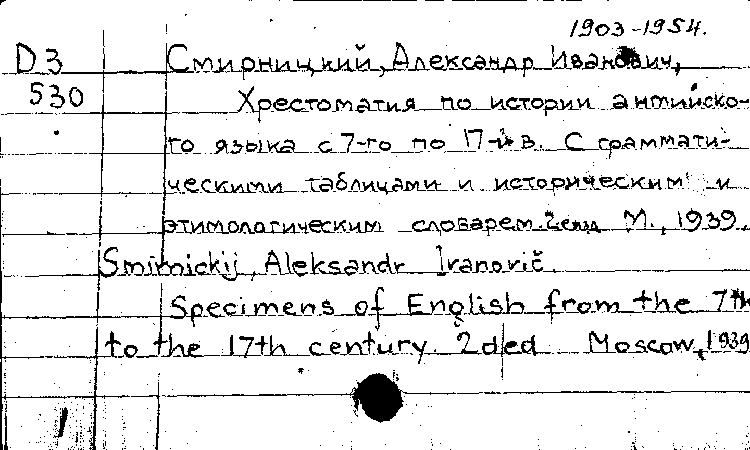 1903-1954.
D3 Смирницкий, Александр Иванович,
530 Хрестоматия по истории английско-
го языка с 7-го по 17-й в. С граммати-
ческими таблицами и историческим и
этимологическим словарем. 2 изд М., 1939.
Smirnickij, Aleksandr Ivanovič.
Specimens of English from the 7th
to the 17th century. 2d ed Moscow, 1939